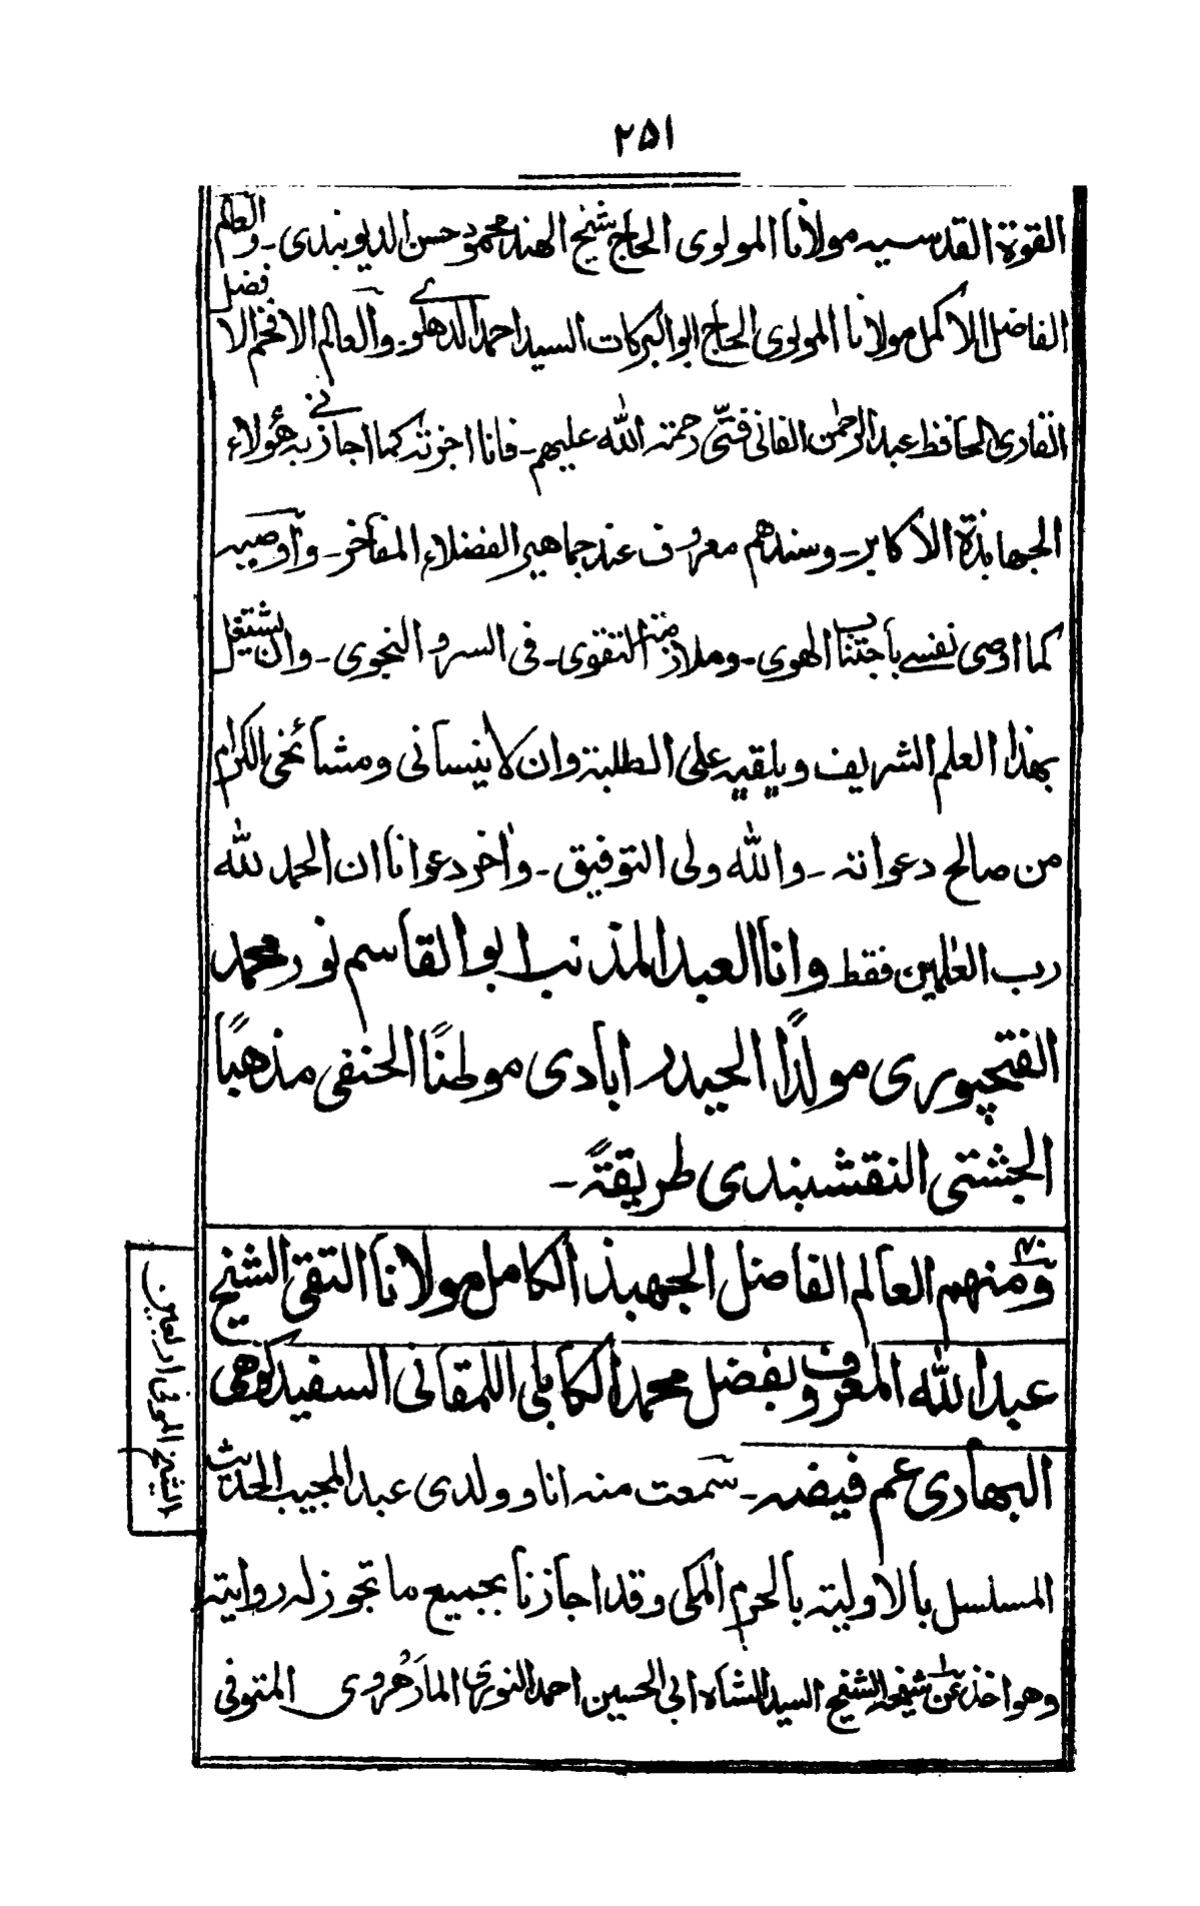 ٢٥١
القوة القدسيه مولانا المولوى الحاج شيخ الهند محمود حسن الديوبندى ـ والعالم
الفاضل الاكمل مولانا المولوى الحاج ابوالبركات السيد احمد الدهلوى ـ والعالم الافخم الافضل
القارى الحافظ عبد الرحمن الفانى فتى رحمة الله عليهم ـ فانا اجزته كما اجازنى به هؤلاء
الجهابذة الاكابر ـ وسندهم معروف عند جماهير الفضلاء المفاخر ـ وأوصيه
كما اوصى نفسى بأجتناب الهوى ـ وملازمة التقوى ـ فى السر و النجوى ـ وان يشتغل
بهذا العلم الشريف ويلقيه على الطلبة وان لا ينسانى ومشائخى الكرام
من صالح دعواته ـ والله ولى التوفيق ـ وأخر دعوانا ان الحمد لله
رب العلمين فقط وانا العبد المذنب ابو القاسم نور محمد
الفتحپورى مولدًا الحيدر ابادى موطنًا الحنفى مذهبًا
الجشتى النقشبندى طريقةً ـ
ومنهم العالم الفاضل الجهبذ الكامل مولانا التقى الشيخ
عبد الله المعروف بفضل محمد الكابلى اللمقانى السفيد كوهى
البهادى عم فيضه ـ سمعت منه انا وولدى عبد المجيب الحديث
المسلسل بالاولية بالحرم المكى وقد اجازنا بجميع ما تجوز له روايته
وهو اخذ عن شيخه الشيخ السيد الشاه ابى الحسين احمد النورى المارهروى المتوفى
الشيخ الموفى اربعين